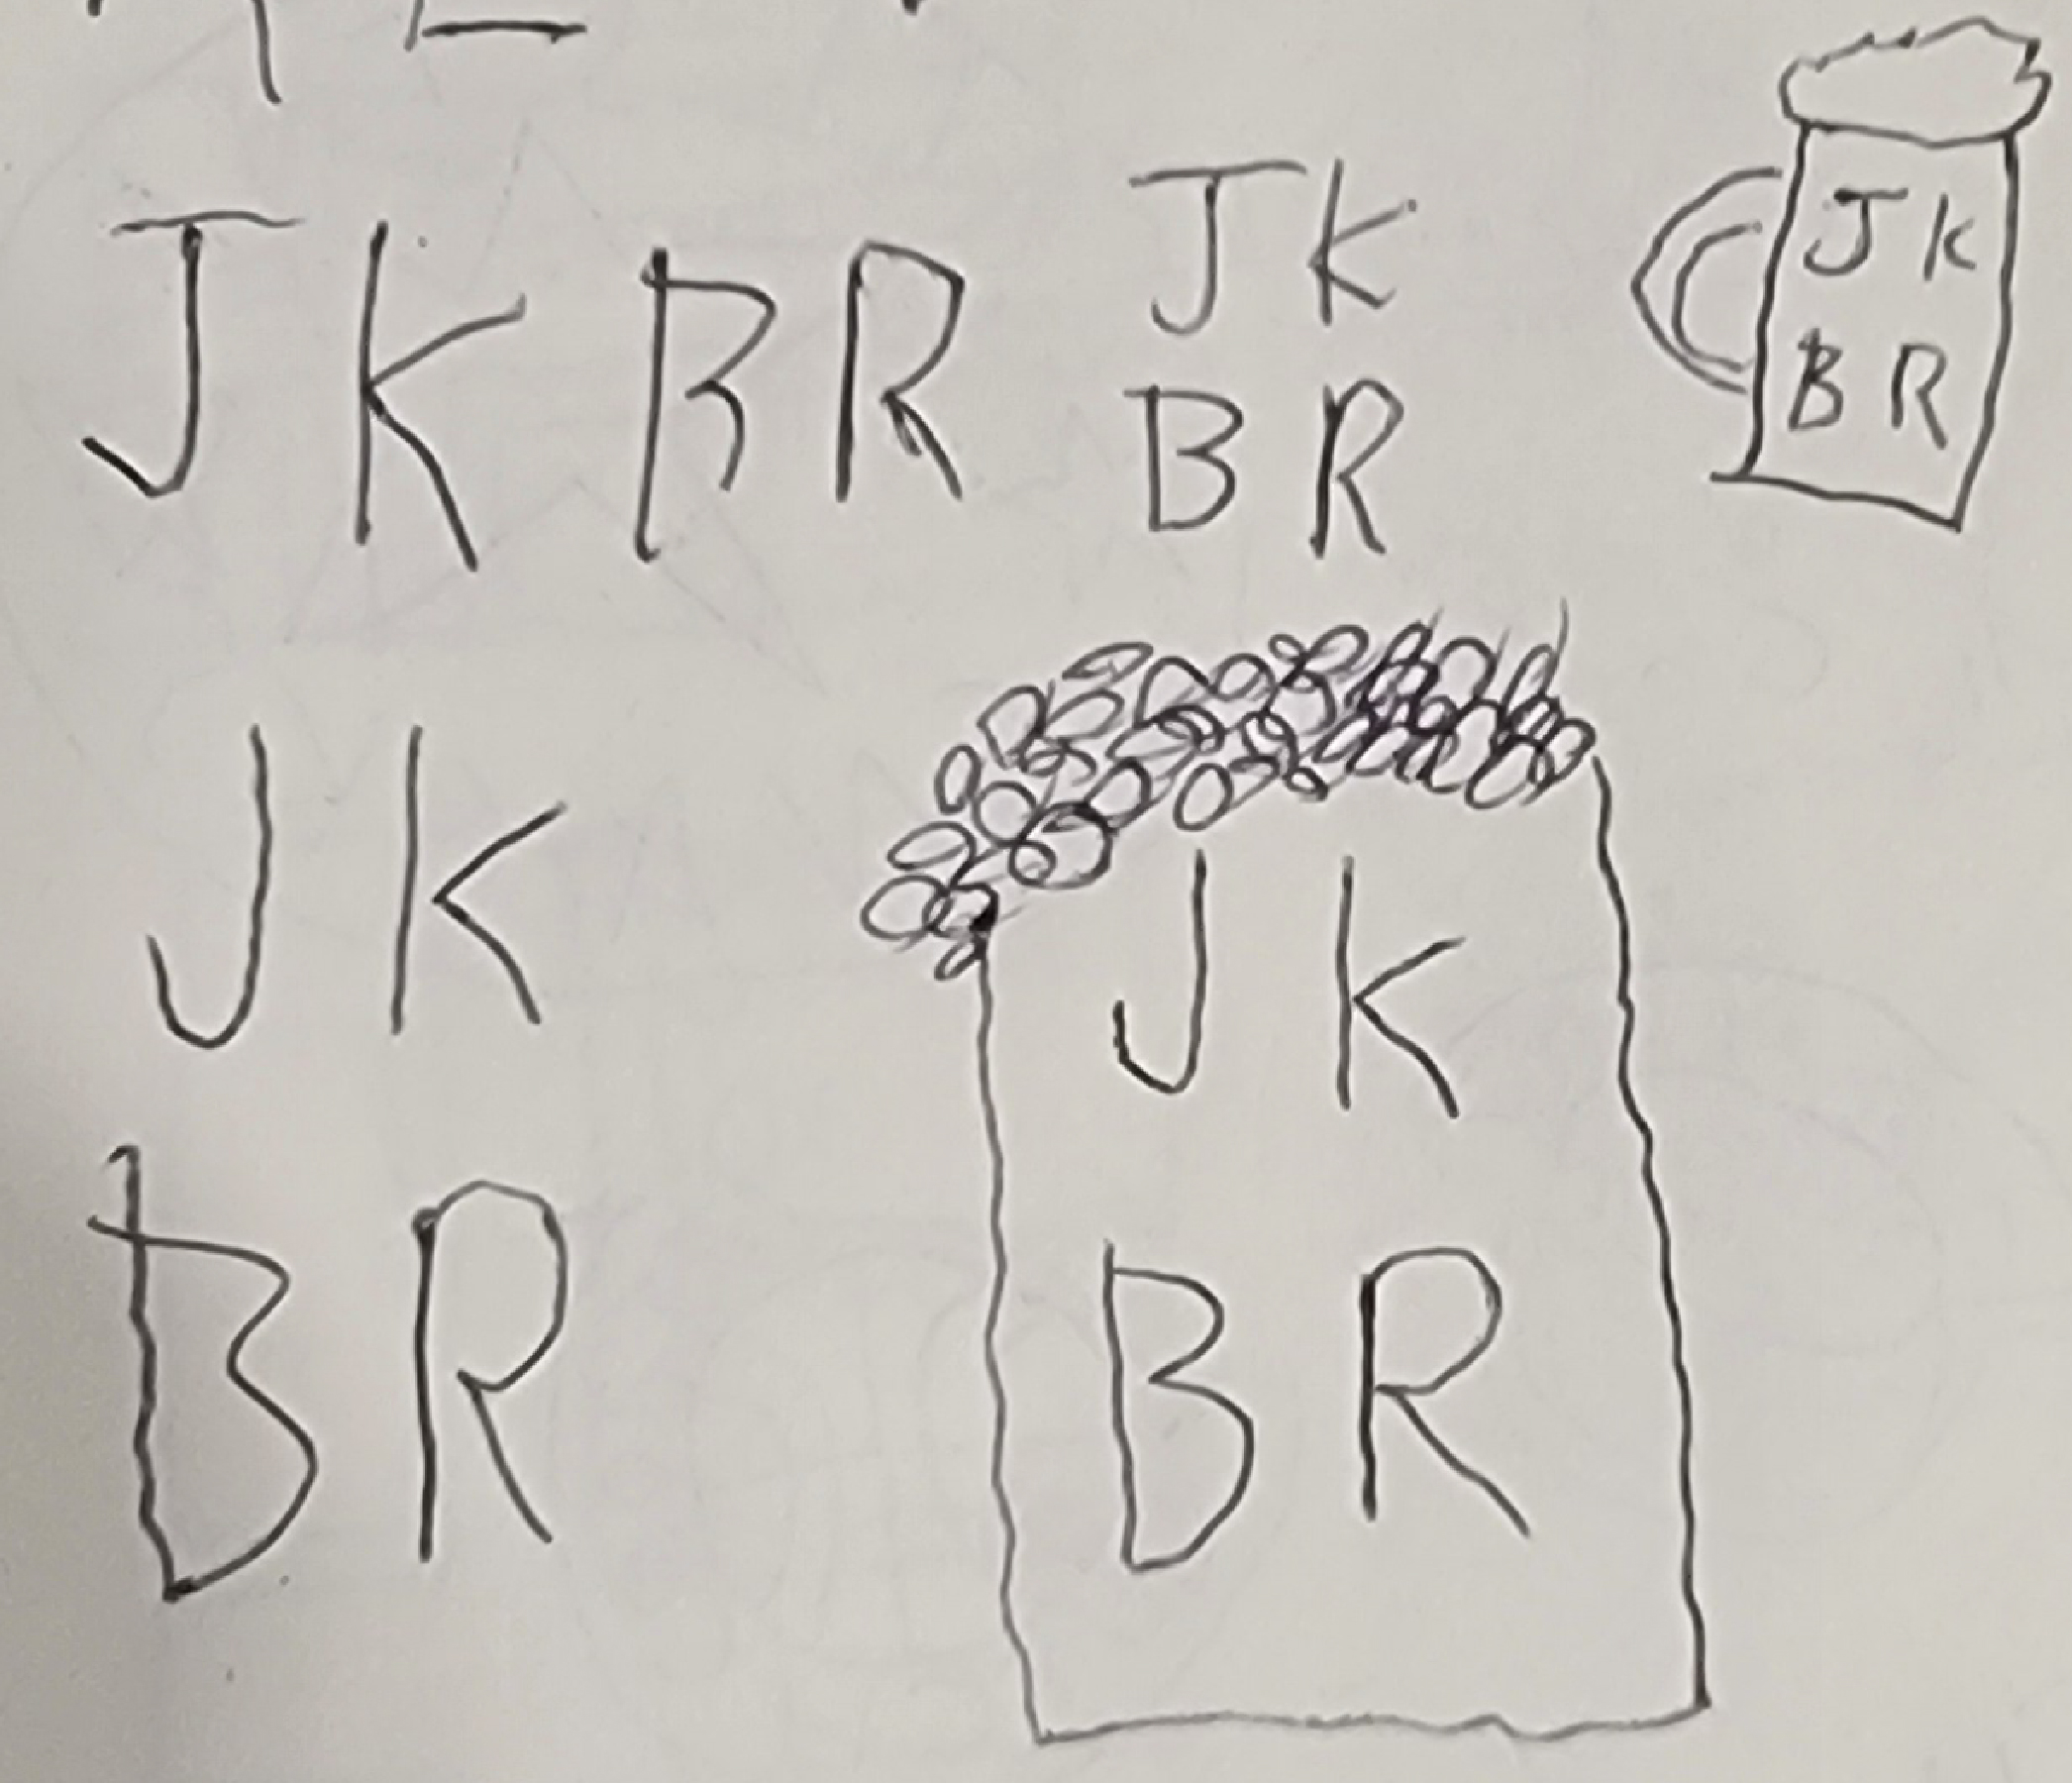 J K B R
J K
B R
J K
B R
J K
B R
J K
B R